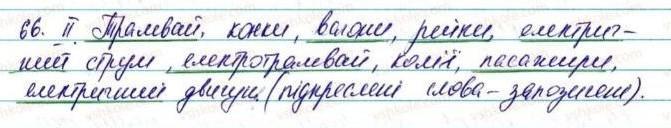 66. II Трамвай, конки, вагони, рейки, електрич-
ний струм, електротрамвай, колії, пасажири,
електричний двигун (підкреслені слова - запозичені).